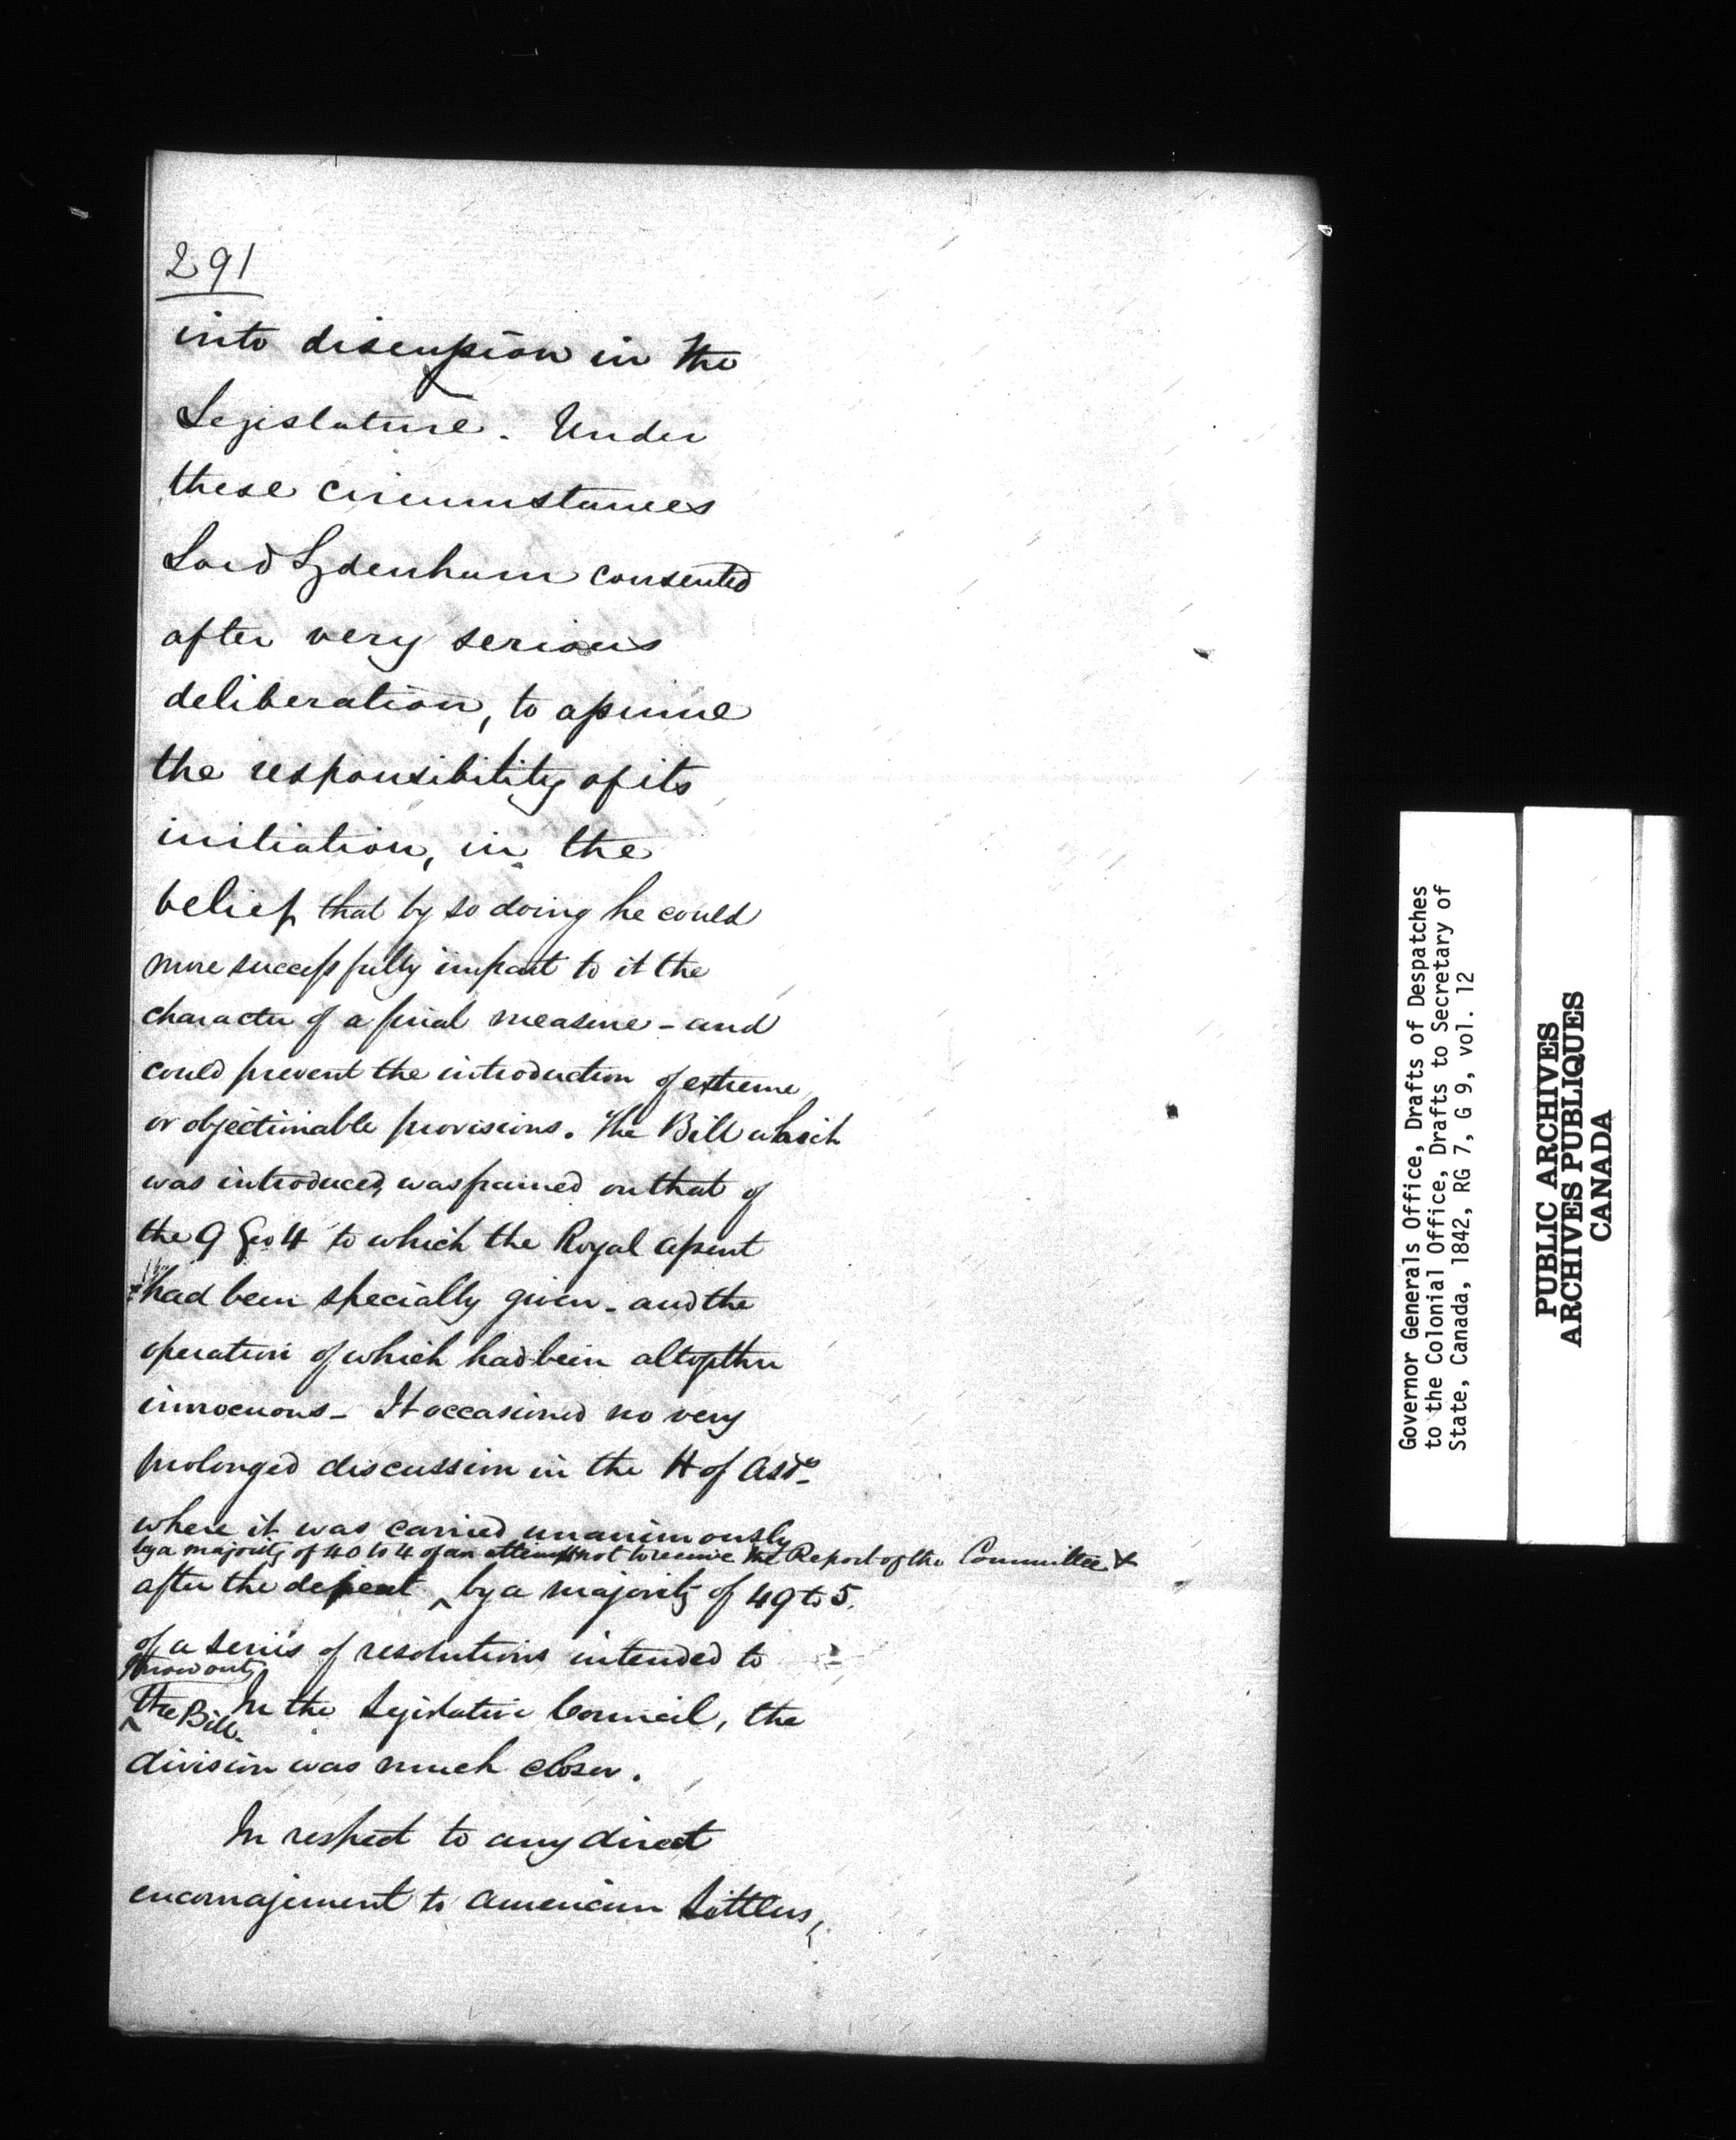 291
into discussion in the
Legislature. Under
these circumstances
Lord Sydenham consented
after very serious
deliberation, to assume
the responsibility of its
initiation, in the
belief that by so doing he could
more successfully impart to it the
character of a final measure - and
could prevent the introduction of extreme
or objectionable provisions. The Bill which
was introduced, was framed on that of
the 9 Geo 4 to which the Royal assent
had been specially given - and the
operation of which had been altogether
innocuous - It occasioned no very
prolonged discussion in the H of
where it was carried unanimously
by a majority of 40 to 4 of an attempt not to receive the Report of the Committee &
after the defeat ^ by a majority of 49 to 5.
of a series of resolutions intended to
throw out
the Bill. In the Legislative Council, the
division was much closer.
In respect to any direct
encouragement to American Settlers,
Governor Generals Office, Drafts of Despatches
to the Colonial Office, Drafts to Secretary of
State, Canada, 1842, RG 7, G 9, vol. 12
PUBLIC ARCHIVES
ARCHIVES PUBLIQUES
CANADA